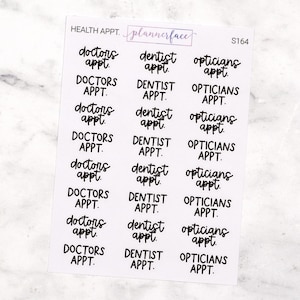 HEALTH APPT. plannerface S164
doctors appt. dentist appt. opticians appt.
DOCTORS APPT. DENTIST APPT. OPTICIANS APPT.
doctors appt. dentist appt. opticians appt.
DOCTORS APPT. DENTIST APPT. OPTICIANS APPT.
doctors appt. dentist appt. opticians appt.
DOCTORS APPT. DENTIST APPT. OPTICIANS APPT.
doctors appt. dentist appt. opticians appt.
DOCTORS APPT. DENTIST APPT. OPTICIANS APPT.